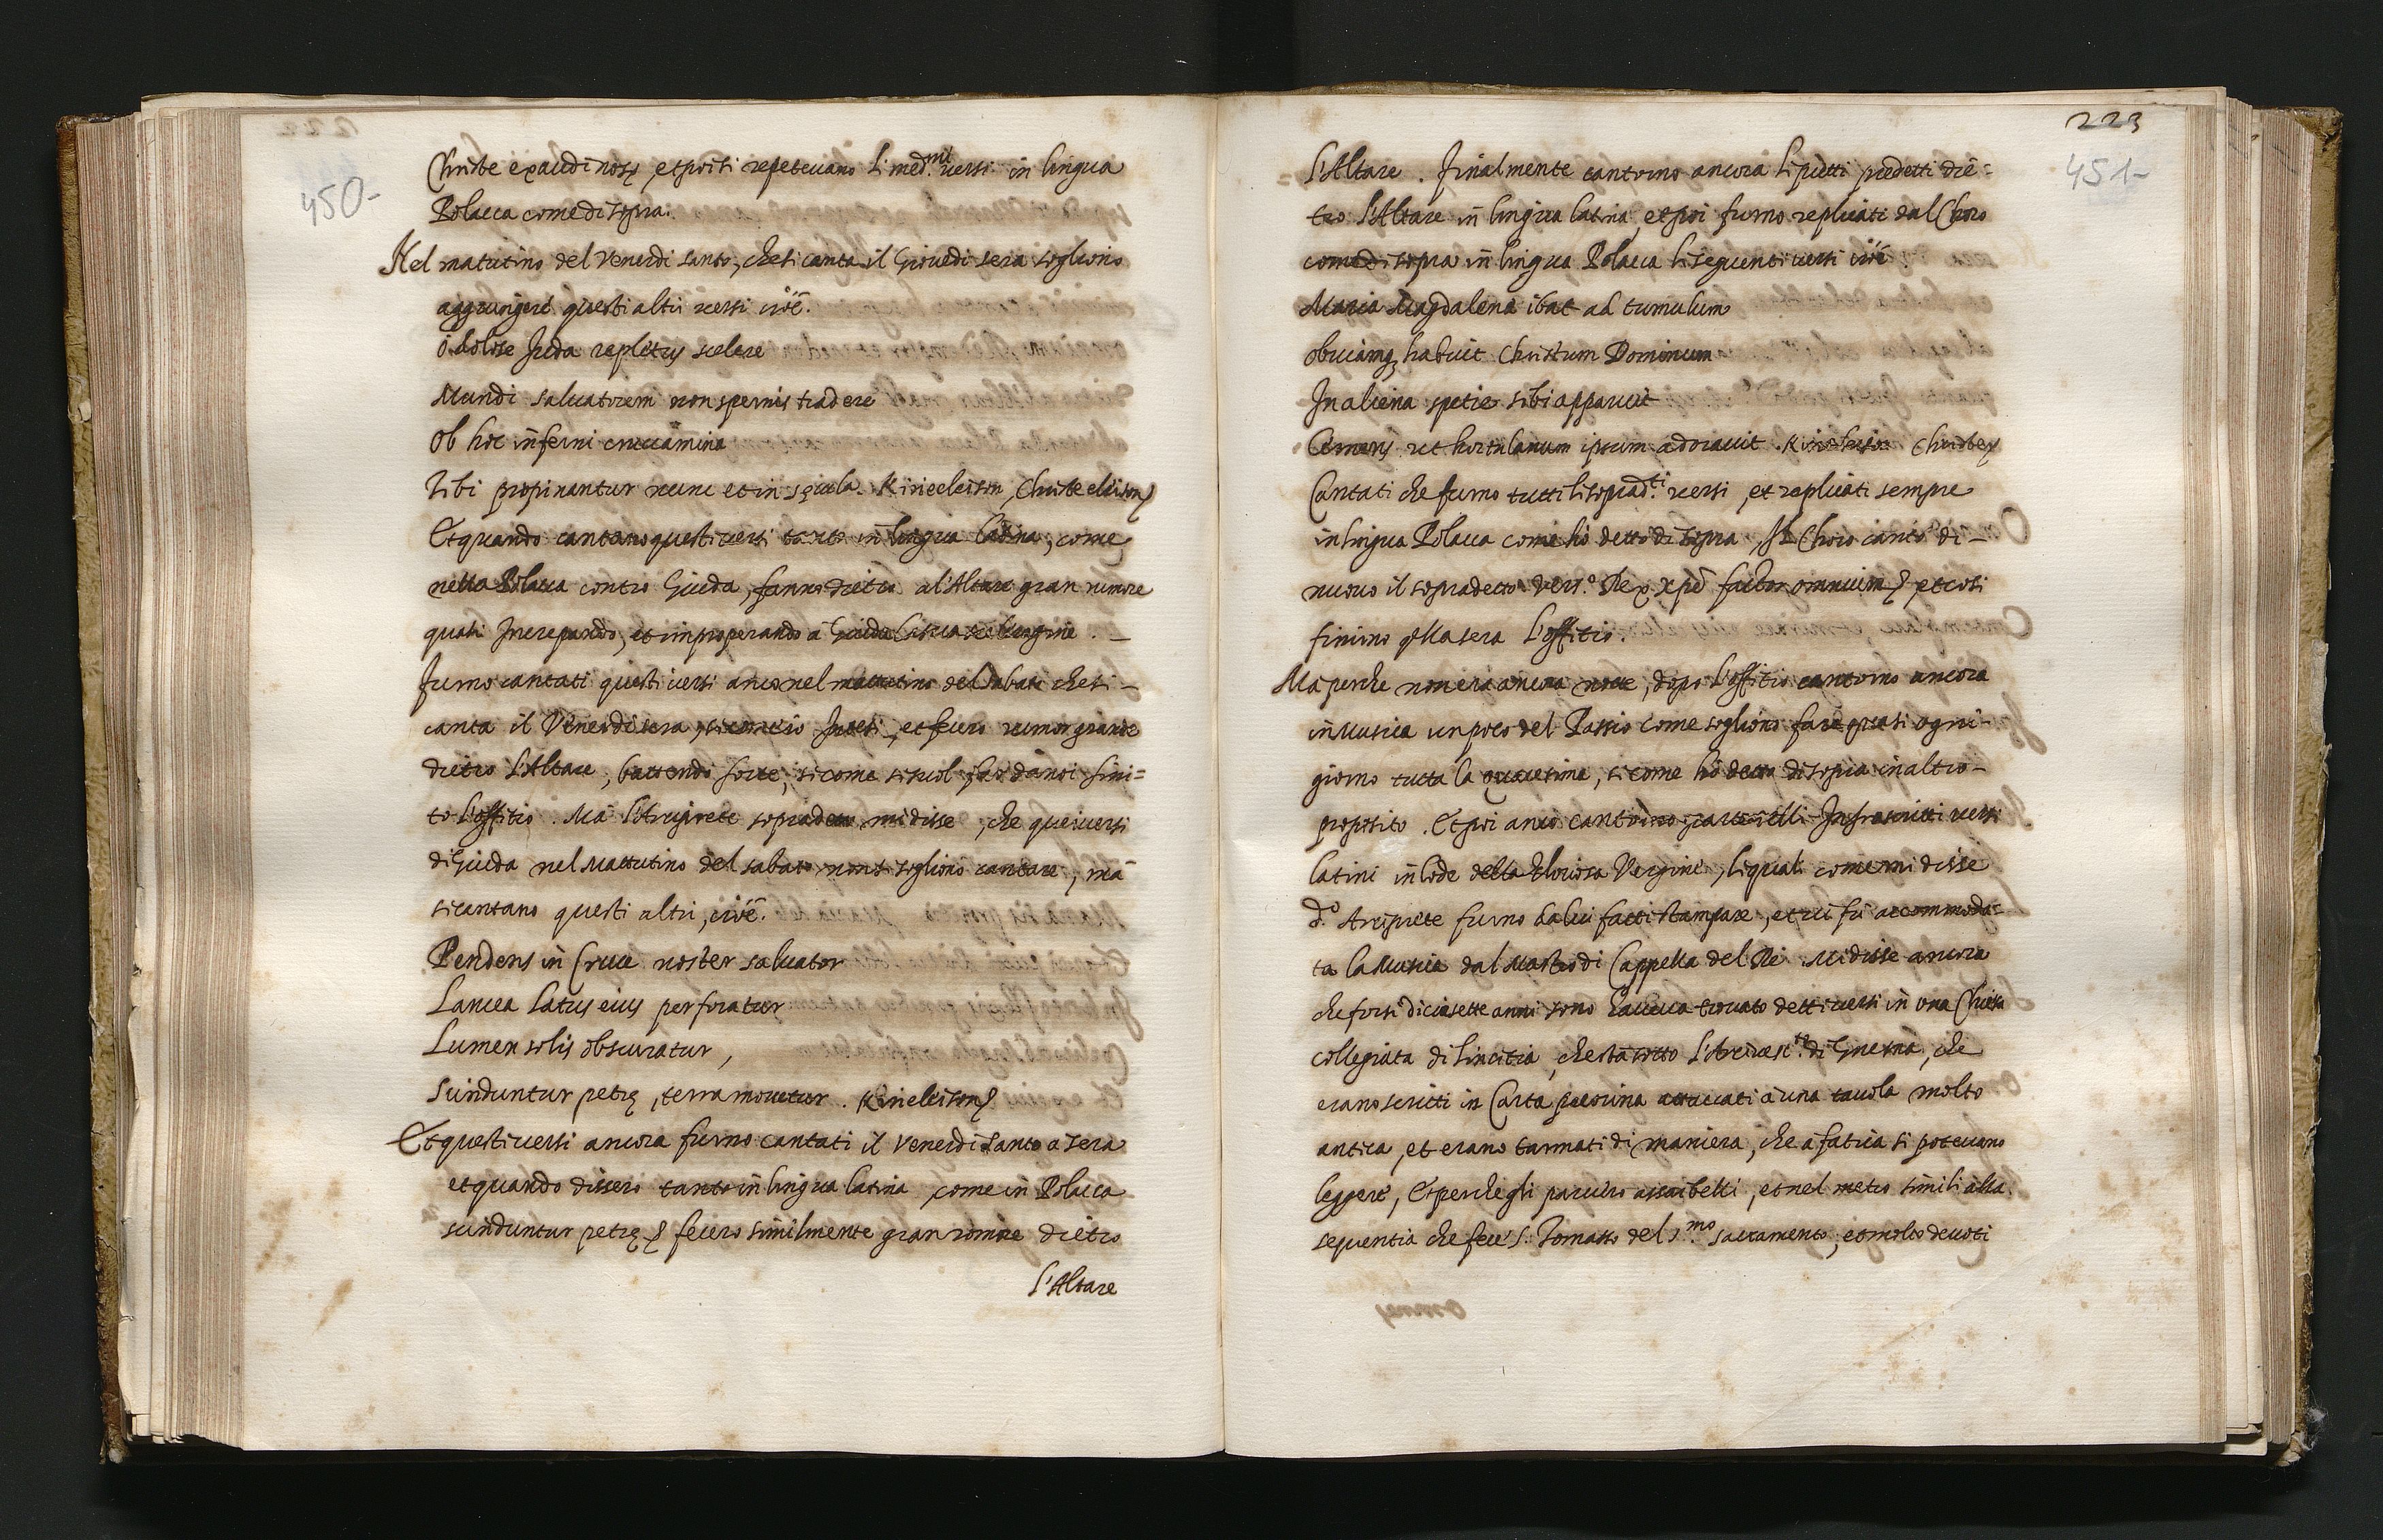 450-
Christe exaudi nos &, et poi si repetevano li med.mi versi in lingua
Polacca come di sopra.
Nel matutino del Venerdi santo, che si canta il Giovedi sera sogliono
aggiungere questi altri versi cioè.
ò dolose Juda repletus scelere
Mundi salvatorem non spernis tradere
Ob hoc inferni cruciamina
Tibi propinantur nunc et in sęcula. Kirieeleison, Christe eleison &
Et quando cantano questi versi tanto in lingua latina, come
nella Polacca contro Giuda, fanno dietro al'Altare gran rumore
quasi Increpando, et improperando à Giuda
Furno cantati questi versi anco nel mattutino del Sabato che si-
canta il Venerdi sera, et fecero rumor grande
dietro l'Altare, battendo forte, si come si suol far da noi fini=
to l'offitio. Mà l'Arciprete sopradetto mi disse, che quei versi
di Giuda nel Mattutino del sabato non si sogliono cantare, mà
si cantano questi altri, cioè.
Pendens in Cruce noster salvator
Lancea latus eius perforatur
Lumen solis obscuratur,
Scinduntur petrę, terra movetur. Kirieleison &
Et questi versi ancora furno cantati il Venerdi santo a sera
et quando dissero tanto in lingua latina, come in Polacca
scinduntur petrę & fecero similmente gran romore dietro
l'Altare
223
451-
l'Altare. Finalmente cantorno ancora li putti predetti die=
tro l'Altare in lingua latina, et poi furno replicati dal Choro
come di sopra in lingua Polacca li seguenti versi cioè.
Maria Magdalena ibat ad tumulum
obviamq; habuit Christum Dominum
In aliena spetie sibi apparuit
Cernens ut hortulanum ipsum adoravit. Kirieleison Christe &
Cantati che furno tutti li soprad.ti versi, et replicati sempre
in lingua Polacca come hò detto di sopra, Il Choro cantò di-
nuovo il sopradetto vers.o Rex xpe factor omnium &, et cosi
finirno qlla sera l'offitio.
Mà perche non era ancora notte, dopo l'offitio cantorno ancora
in Musica un poco del Passio come sogliono fare quasi ogni-
giorno tutta la quaresima, si come hò detto di sopra in altro-
proposito. Et poi anco cantorno Infrascritti versi
latini in lode della Gloriosa Vergine, li quali come mi disse
d.o Arciprete furno da lui fatti stampare, et vi fù accommoda=
ta la Musica dal Mastro di Cappella del Rè. Mi disse ancora
che forsi diciasette anni sono haveva trovato detti versi in una Chiesa
collegiata di Lincitia, che stà sotto l'Arcivesc.to di Gnesna, che
erano scritti in Carta pecorina attaccati à una tavola molto
antica, et erano tarmati di maniera, che à fatica si potevano
leggere, Et perche gli parvero assai belli, et nel metro simili alla
sequentia che fece S. Tomasso del S.mo Sacramento, et molto devoti